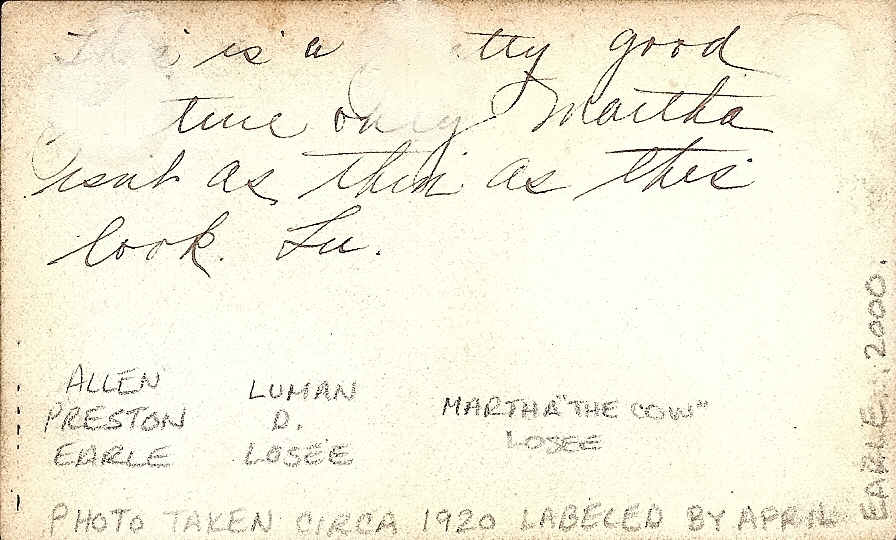 This is a tty good
ture only Martha
isnt as thin as this
look. Lu.
ALLEN
PRESTON
EARLE
LUMAN
D.
LOSEE
MARTHA "THE COW"
LOSEE
PHOTO TAKEN CIRCA 1920 LABELED BY APRIL
EARLE 2000.